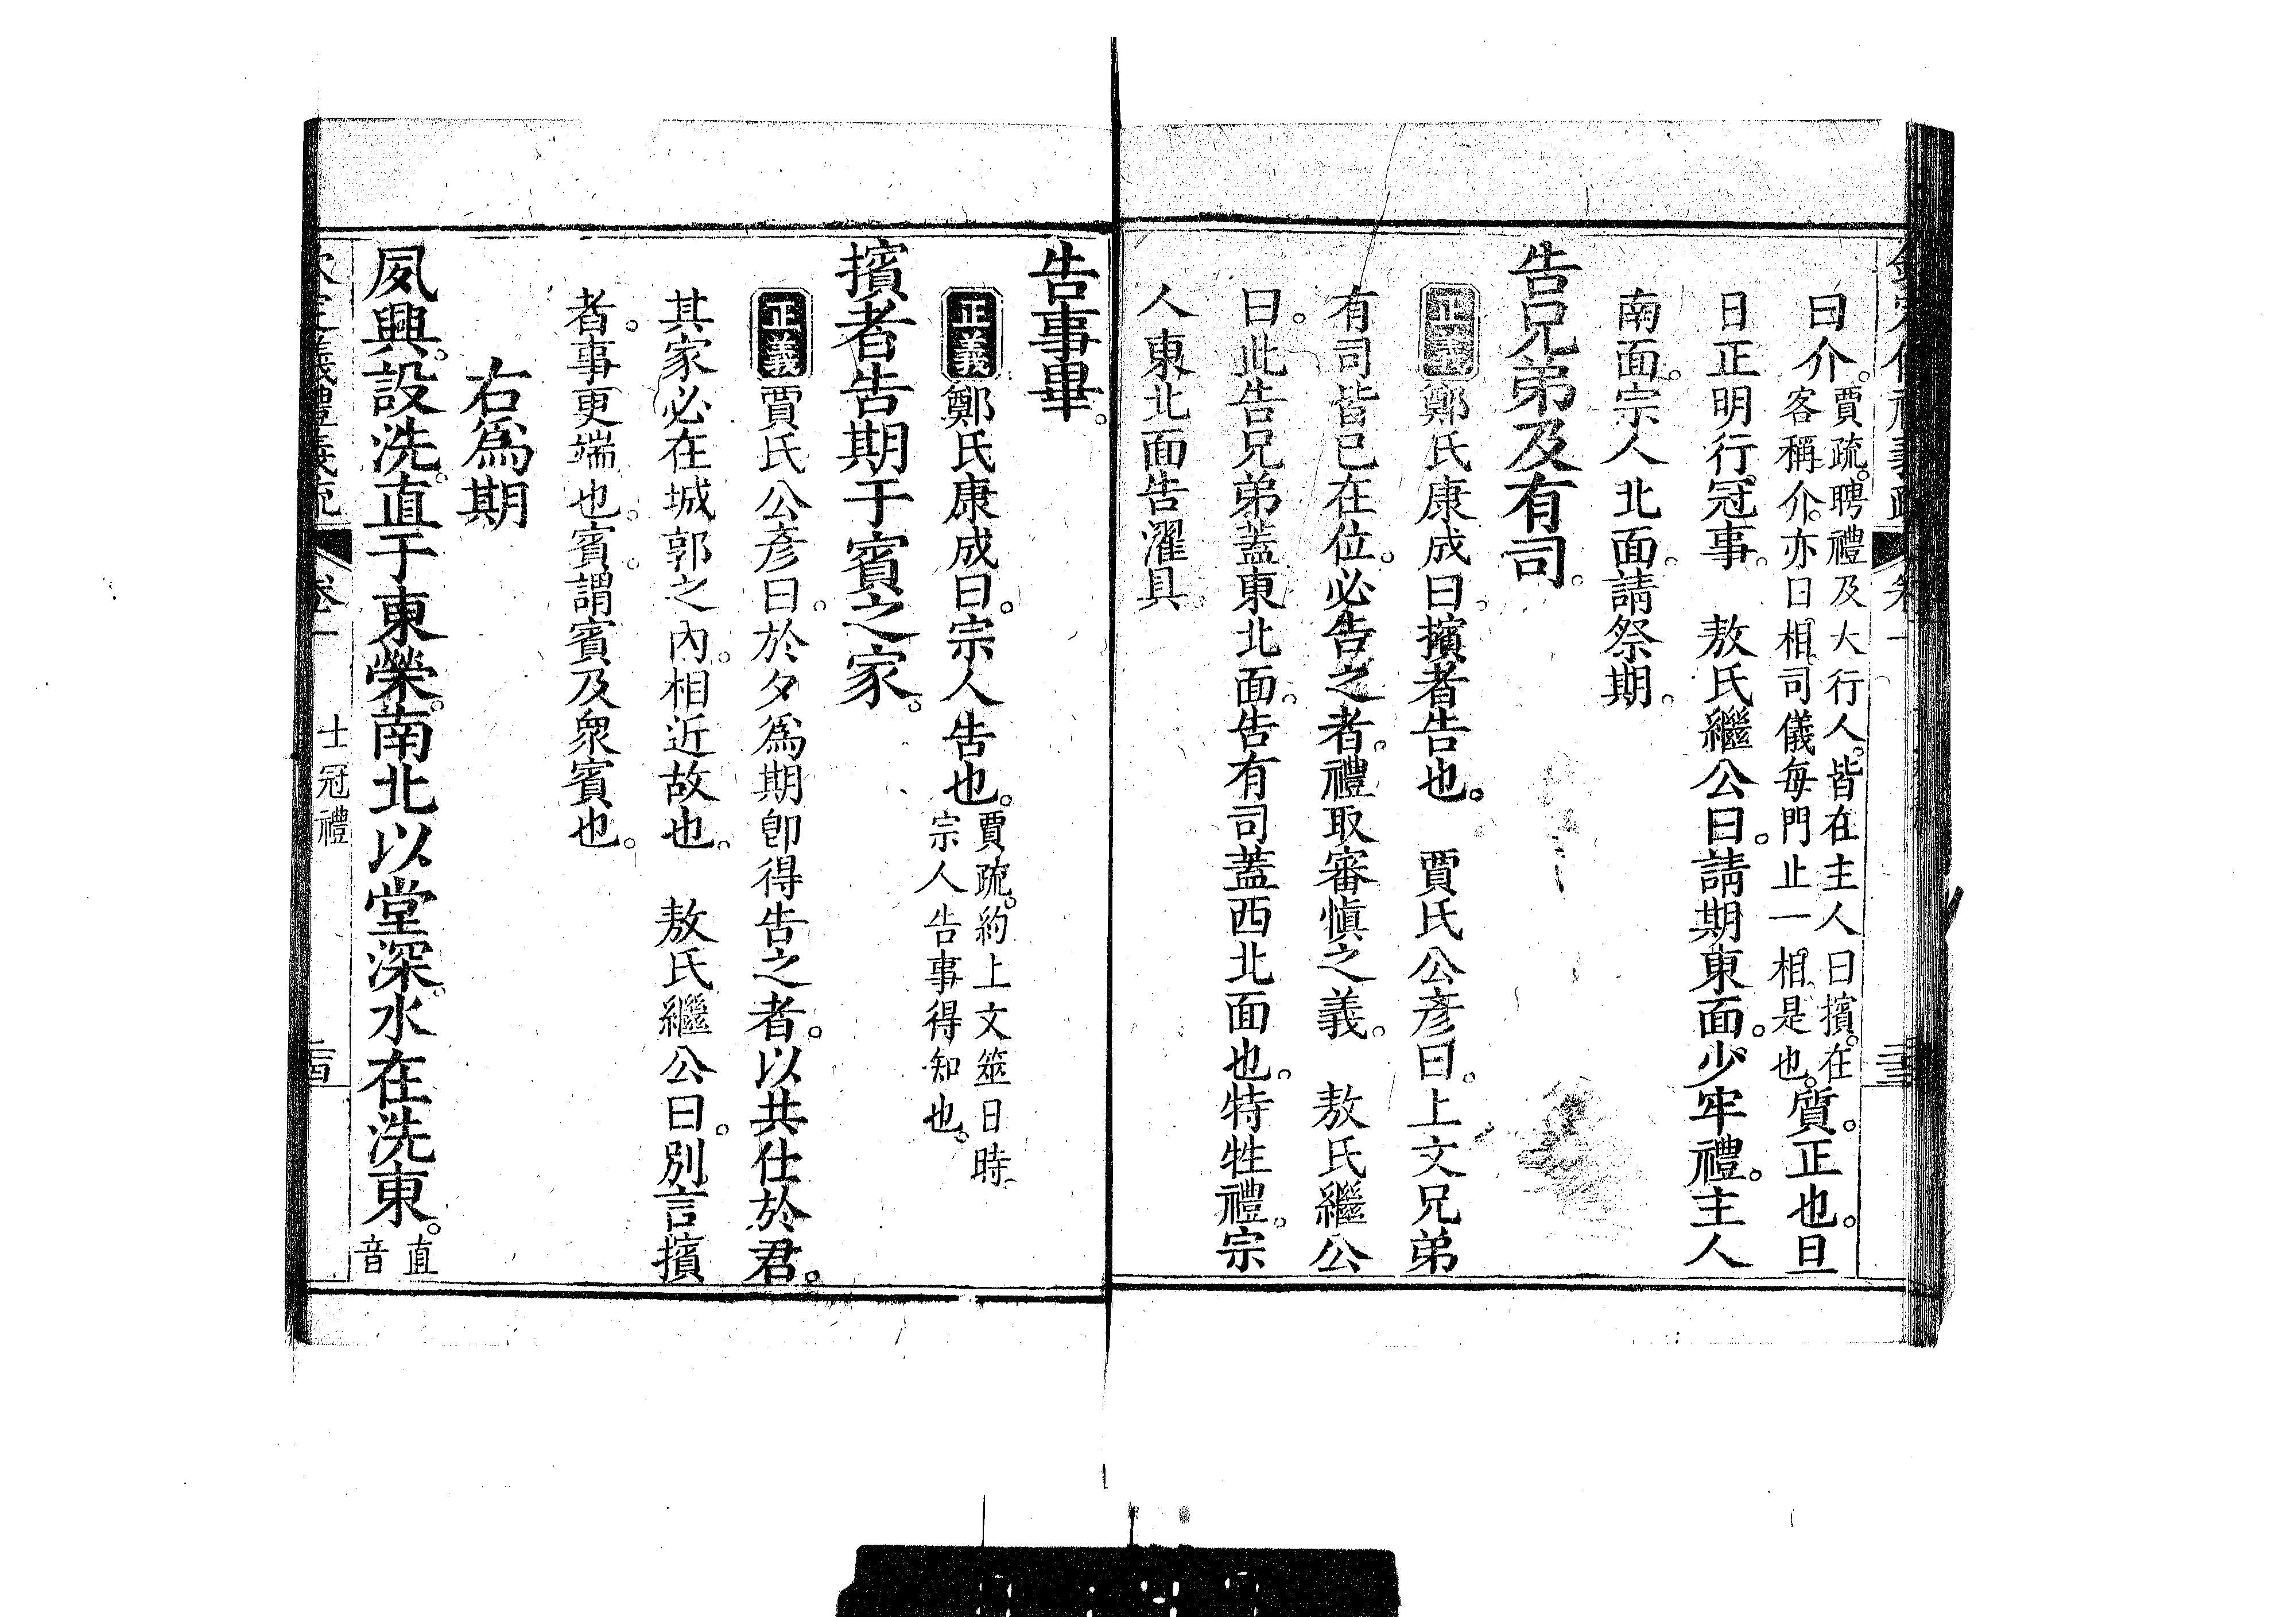 曰介。賈疏。聘禮及大行人。皆在主人曰擯。在
客稱介。亦曰相。司儀每門止一相。是也。質。正也。旦
日正明行。冠事。　敖氏繼公曰。請期東面。少牢禮。主人
南面。宗人北面。請祭期。
告兄弟及有司。
正義鄭氏康成曰。擯者告也。　賈氏公彥曰。上文兄弟
有司皆已在位。必告之者。禮取審愼之義。　敖氏繼公
曰。此告兄弟蓋東北面。告有司蓋西北面也。特牲禮。宗
人東北面告濯具
告事畢。
正義鄭氏康成曰。宗人告也。賈疏。約上文筮日時
宗人告事得知也。
擯者告期于賓之家。
正義賈氏公彥曰。於夕爲期卽得告之者。以共仕於君。
其家必在城郭之內。相近故也。　敖氏繼公曰。別言擯
者。事更端也。賓。謂賓及衆賓也。
右爲期
夙興。設洗。直于東榮。南北以堂深。水在洗東。直
音
儀禮義疏
卷一
士冠禮